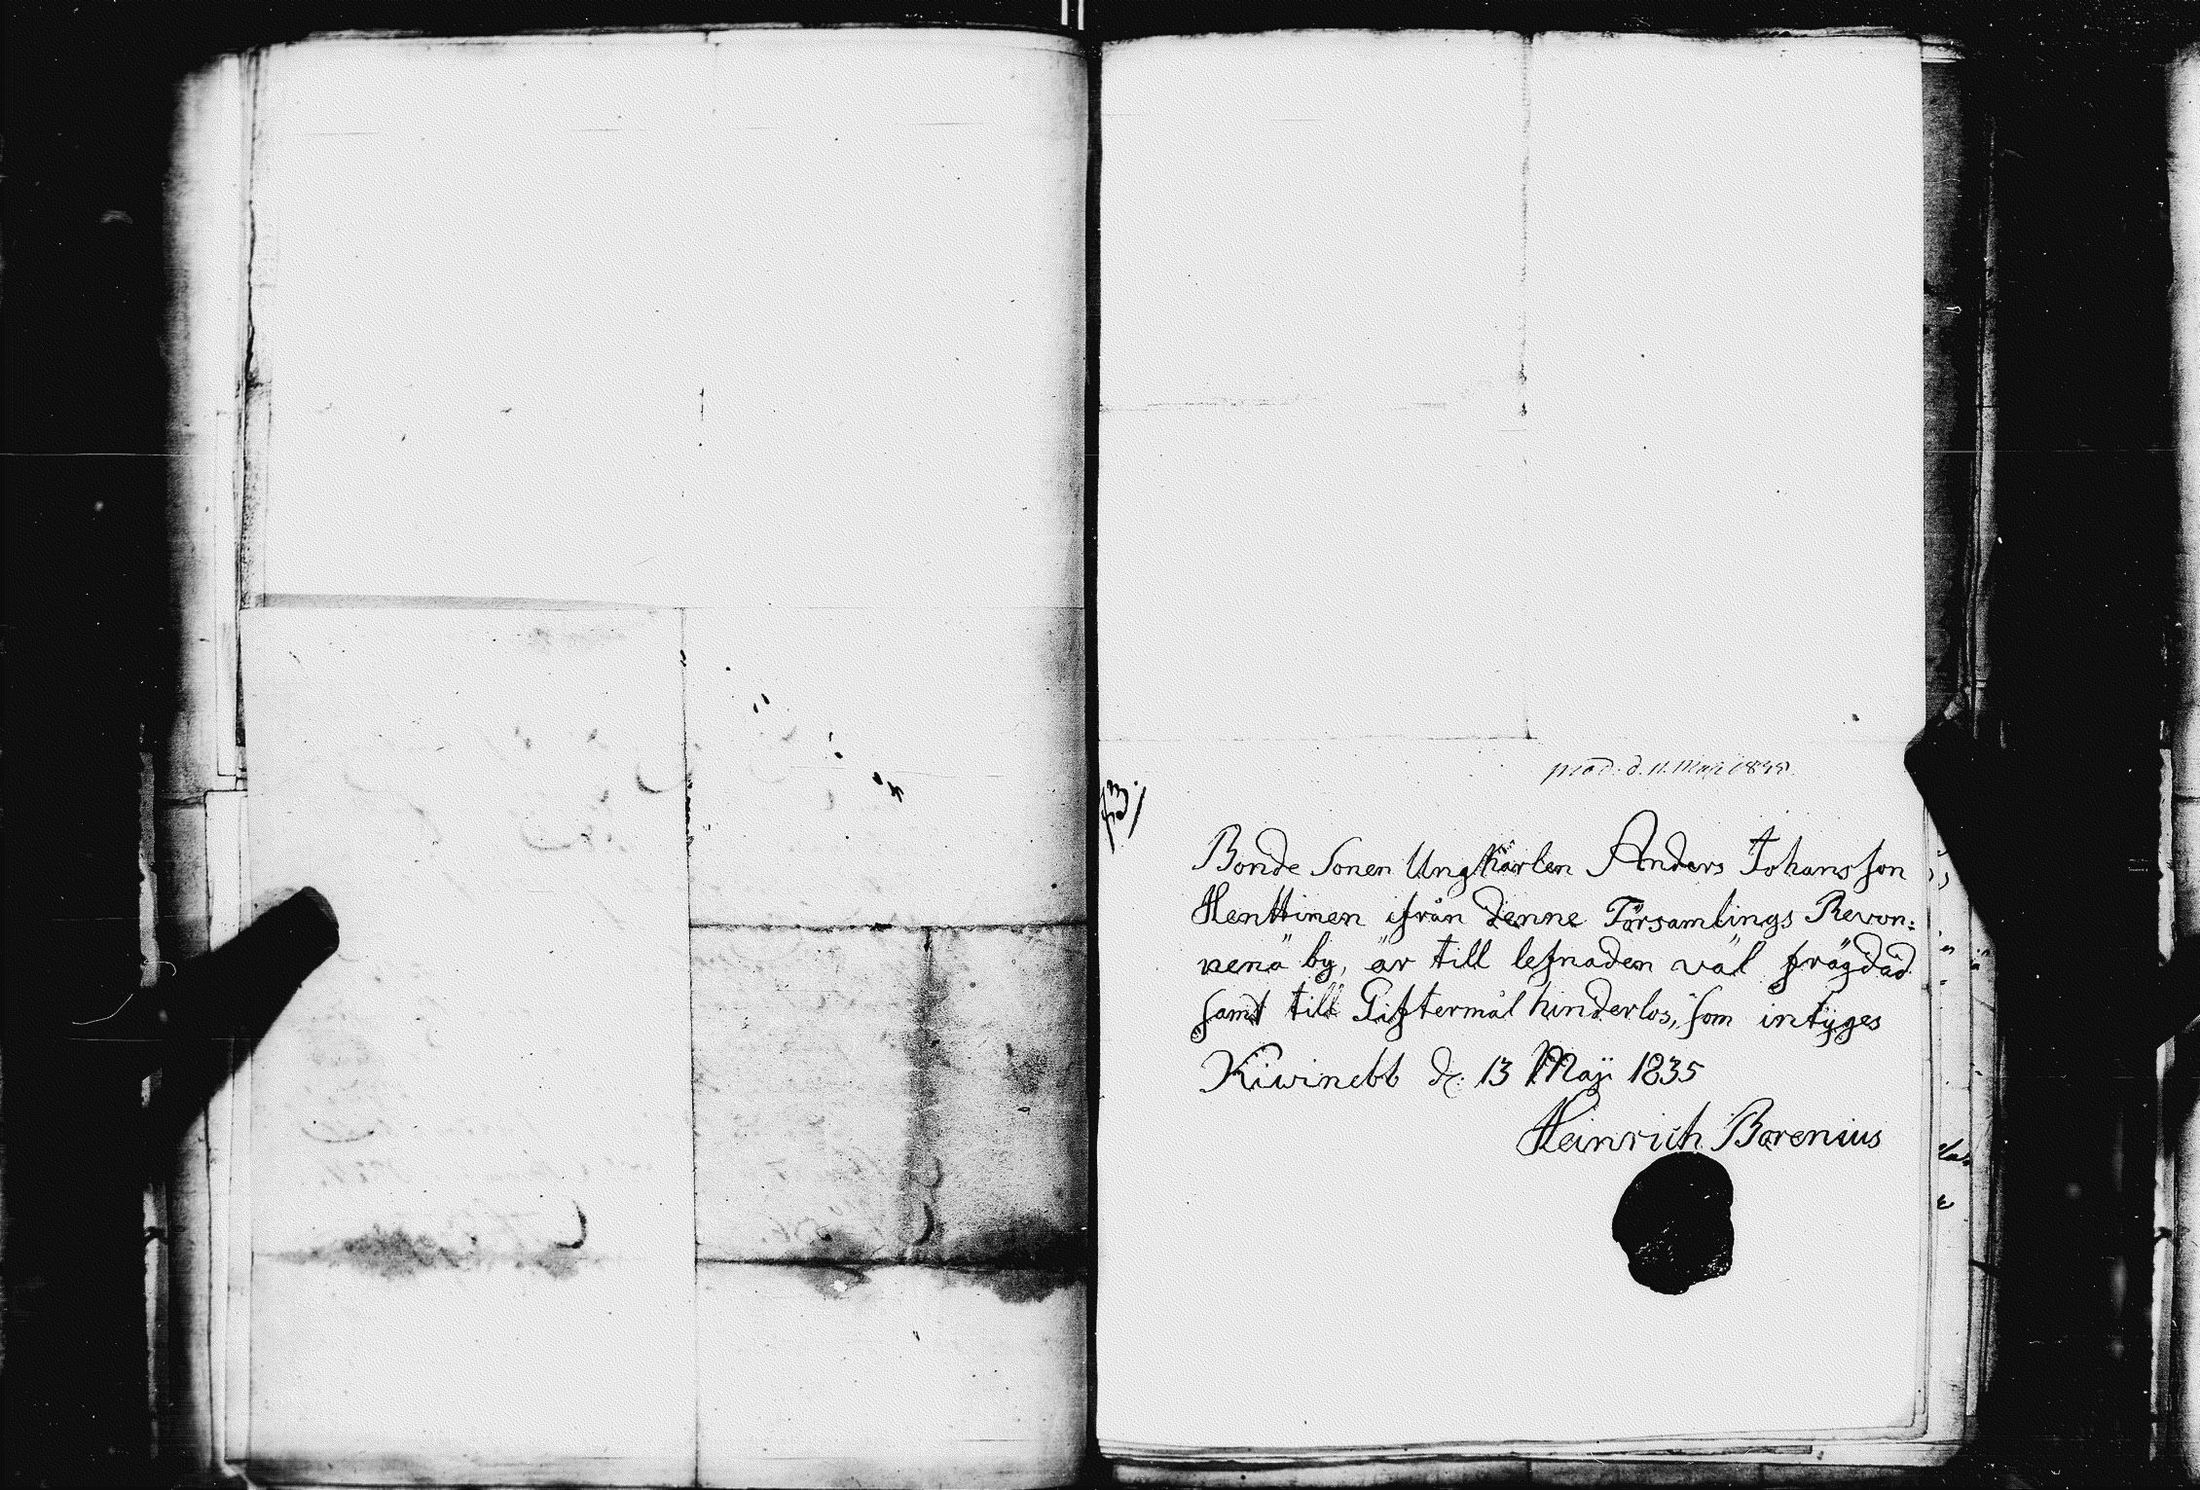 prod: d. 11. Maji 1835.
Bonde Sonen Ungkarlen Anders Johansson
Henttinen ifrån denne Församlings Revon:
nenä by, är till lefnaden väl frägdad
samt till Giftermål hinderlös, som intÿges
Kiwinebb d. 13 Maji 1835
Heinrich Borenius